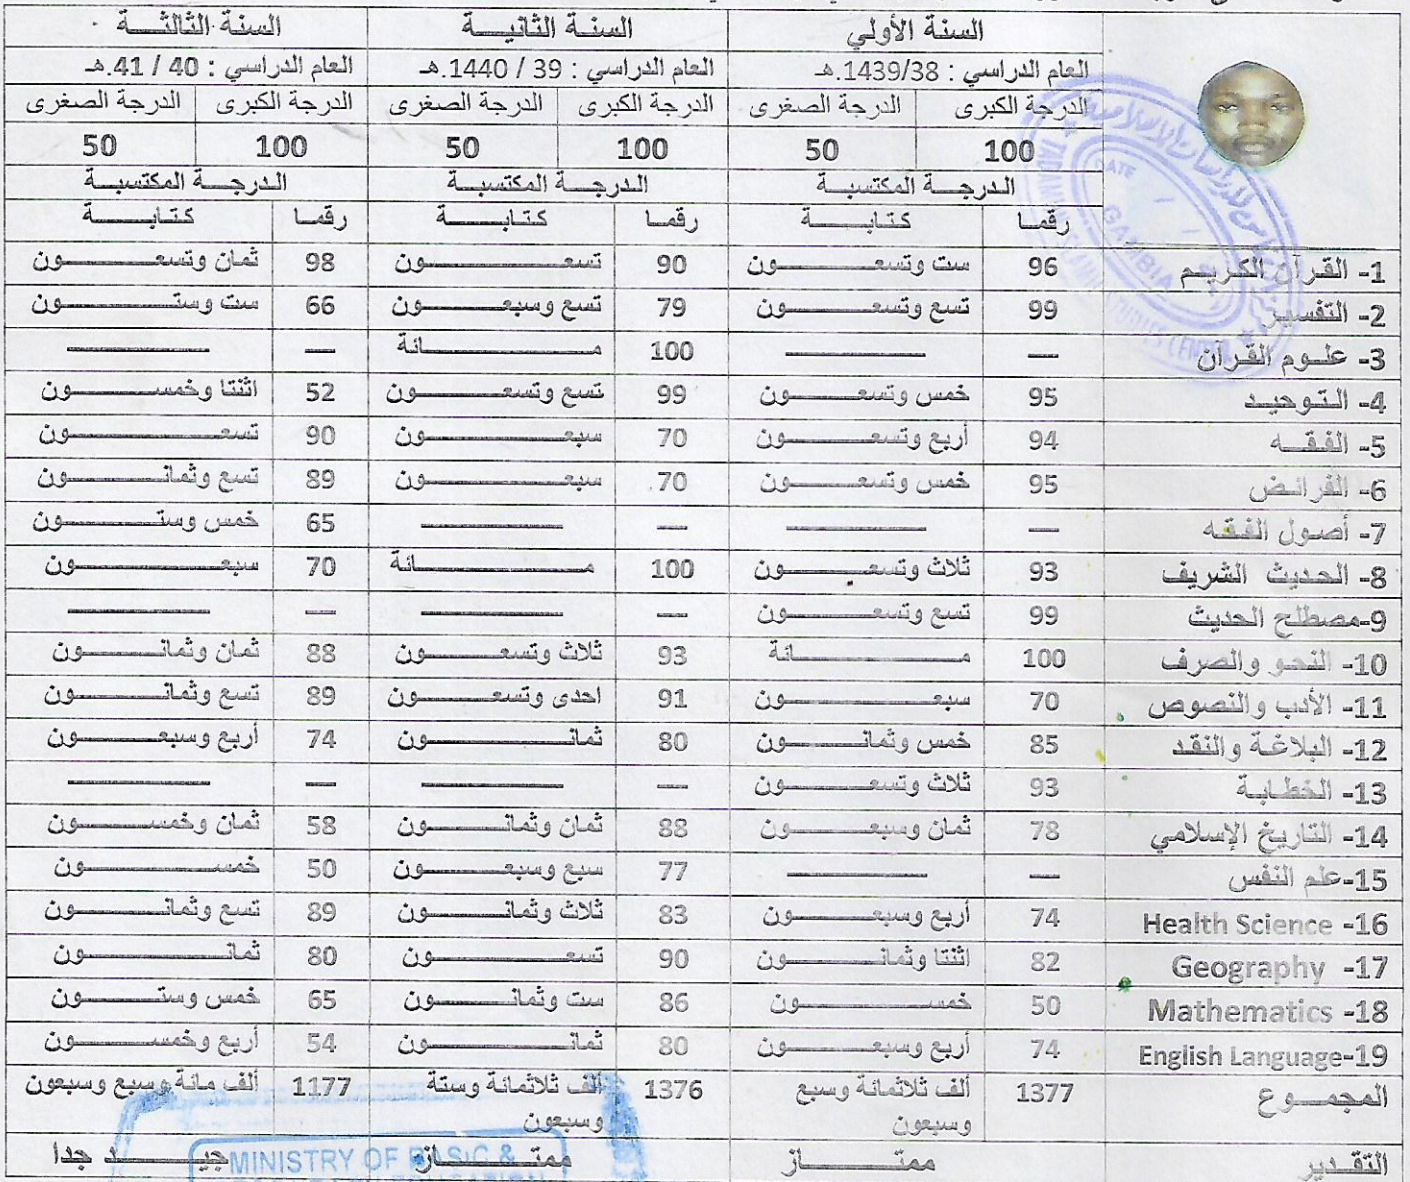 السنة الأولي السنة الثانية السنة الثالثة
العام الدراسي : 1439/38.هـ العام الدراسي : 39 / 1440.هـ العام الدراسي : 40 / 41.هـ
الدرجة الكبرى الدرجة الصغرى الدرجة الكبرى الدرجة الصغرى الدرجة الكبرى الدرجة الصغرى
100 50 100 50 100 50
الدرجة المكتسبة الدرجة المكتسبة الدرجة المكتسبة
رقما كتابة رقما كتابة رقما كتابة
1- القرآن الكريم 96 ست وتسعون 90 تسعون 98 ثمان وتسعون
2- التفسير 99 تسع وتسعون 79 تسع وسبعون 66 ست وستون
3- علوم القرآن — — 100 مائة — —
4- التوحيد 95 خمس وتسعون 99 تسع وتسعون 52 اثنتا وخمسون
5- الفقه 94 أربع وتسعون 70 سبعون 90 تسعون
6- الفرائض 95 خمس وتسعون 70 سبعون 89 تسع وثمانون
7- أصول الفقه — — — — 65 خمس وستون
8- الحديث الشريف 93 ثلاث وتسعون 100 مائة 70 سبعون
9-مصطلح الحديث 99 تسع وتسعون — — — —
10- النحو والصرف 100 مائة 93 ثلاث وتسعون 88 ثمان وثمانون
11- الأدب والنصوص 70 سبعون 91 احدى وتسعون 89 تسع وثمانون
12- البلاغة والنقد 85 خمس وثمانون 80 ثمانون 74 أربع وسبعون
13- الخطابة 93 ثلاث وتسعون — — — —
14- التاريخ الإسلامي 78 ثمان وسبعون 88 ثمان وثمانون 58 ثمان وخمسون
15-علم النفس — — 77 سبع وسبعون 50 خمسون
16- Health Science 74 أربع وسبعون 83 ثلاث وثمانون 89 تسع وثمانون
17- Geography 82 اثنتا وثمانون 90 تسعون 80 ثمانون
18- Mathematics 50 خمسون 86 ست وثمانون 65 خمس وستون
19-English Language 74 أربع وسبعون 80 ثمانون 54 أربع وخمسون
المجموع 1377 ألف ثلاثمائة وسبع وسبعون 1376 ألف ثلاثمائة وستة وسبعون 1177 ألف مائة وسبع وسبعون
التقدير ممتاز ممتاز جيد جدا
DATE
GAMBIA
MINISTRY OF BASIC &